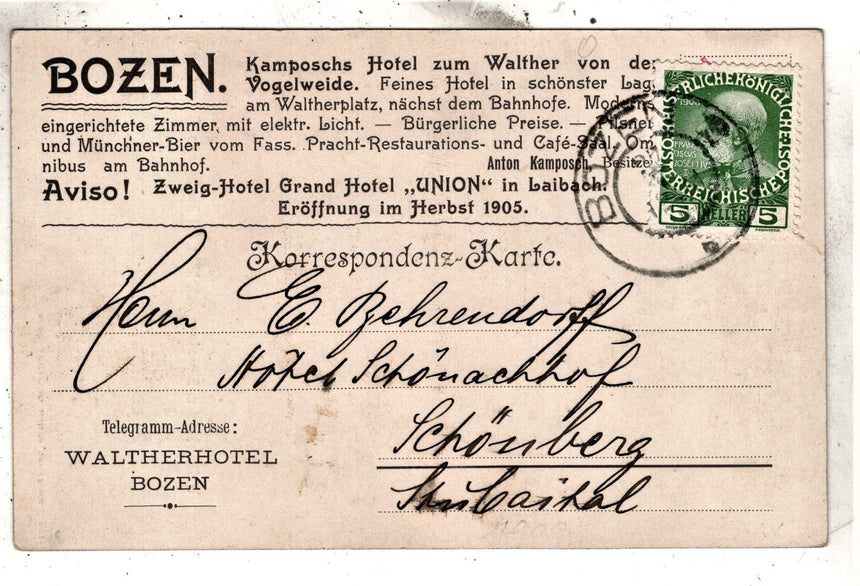 BOZEN.
Kamposchs Hotel zum Walther von der
Vogelweide. Feines Hotel in schönster Lag
am Waltherplatz, nächst dem Bahnhofe. Modernst
eingerichtete Zimmer, mit elektr. Licht. — Bürgerliche Preise. — Pilsner
und Münchner-Bier vom Fass. Pracht-Restaurations- und Café-Saal. Om
nibus am Bahnhof. Anton Kamposch, Besitze
Aviso! Zweig-Hotel Grand Hotel „UNION“ in Laibach.
Eröffnung im Herbst 1905.
KAISERLICHE KÖNIGLICHE ÖSTERREICHISCHE POST
1908
FRANCISCUS JOSEPHUS I
5 HELLER 5
BOZEN
Korrespondenz-Karte.
Herrn E. Behrendorff
Hotel Schönachhof
Schönberg
Stubaital
Telegramm-Adresse:
WALTHERHOTEL
BOZEN